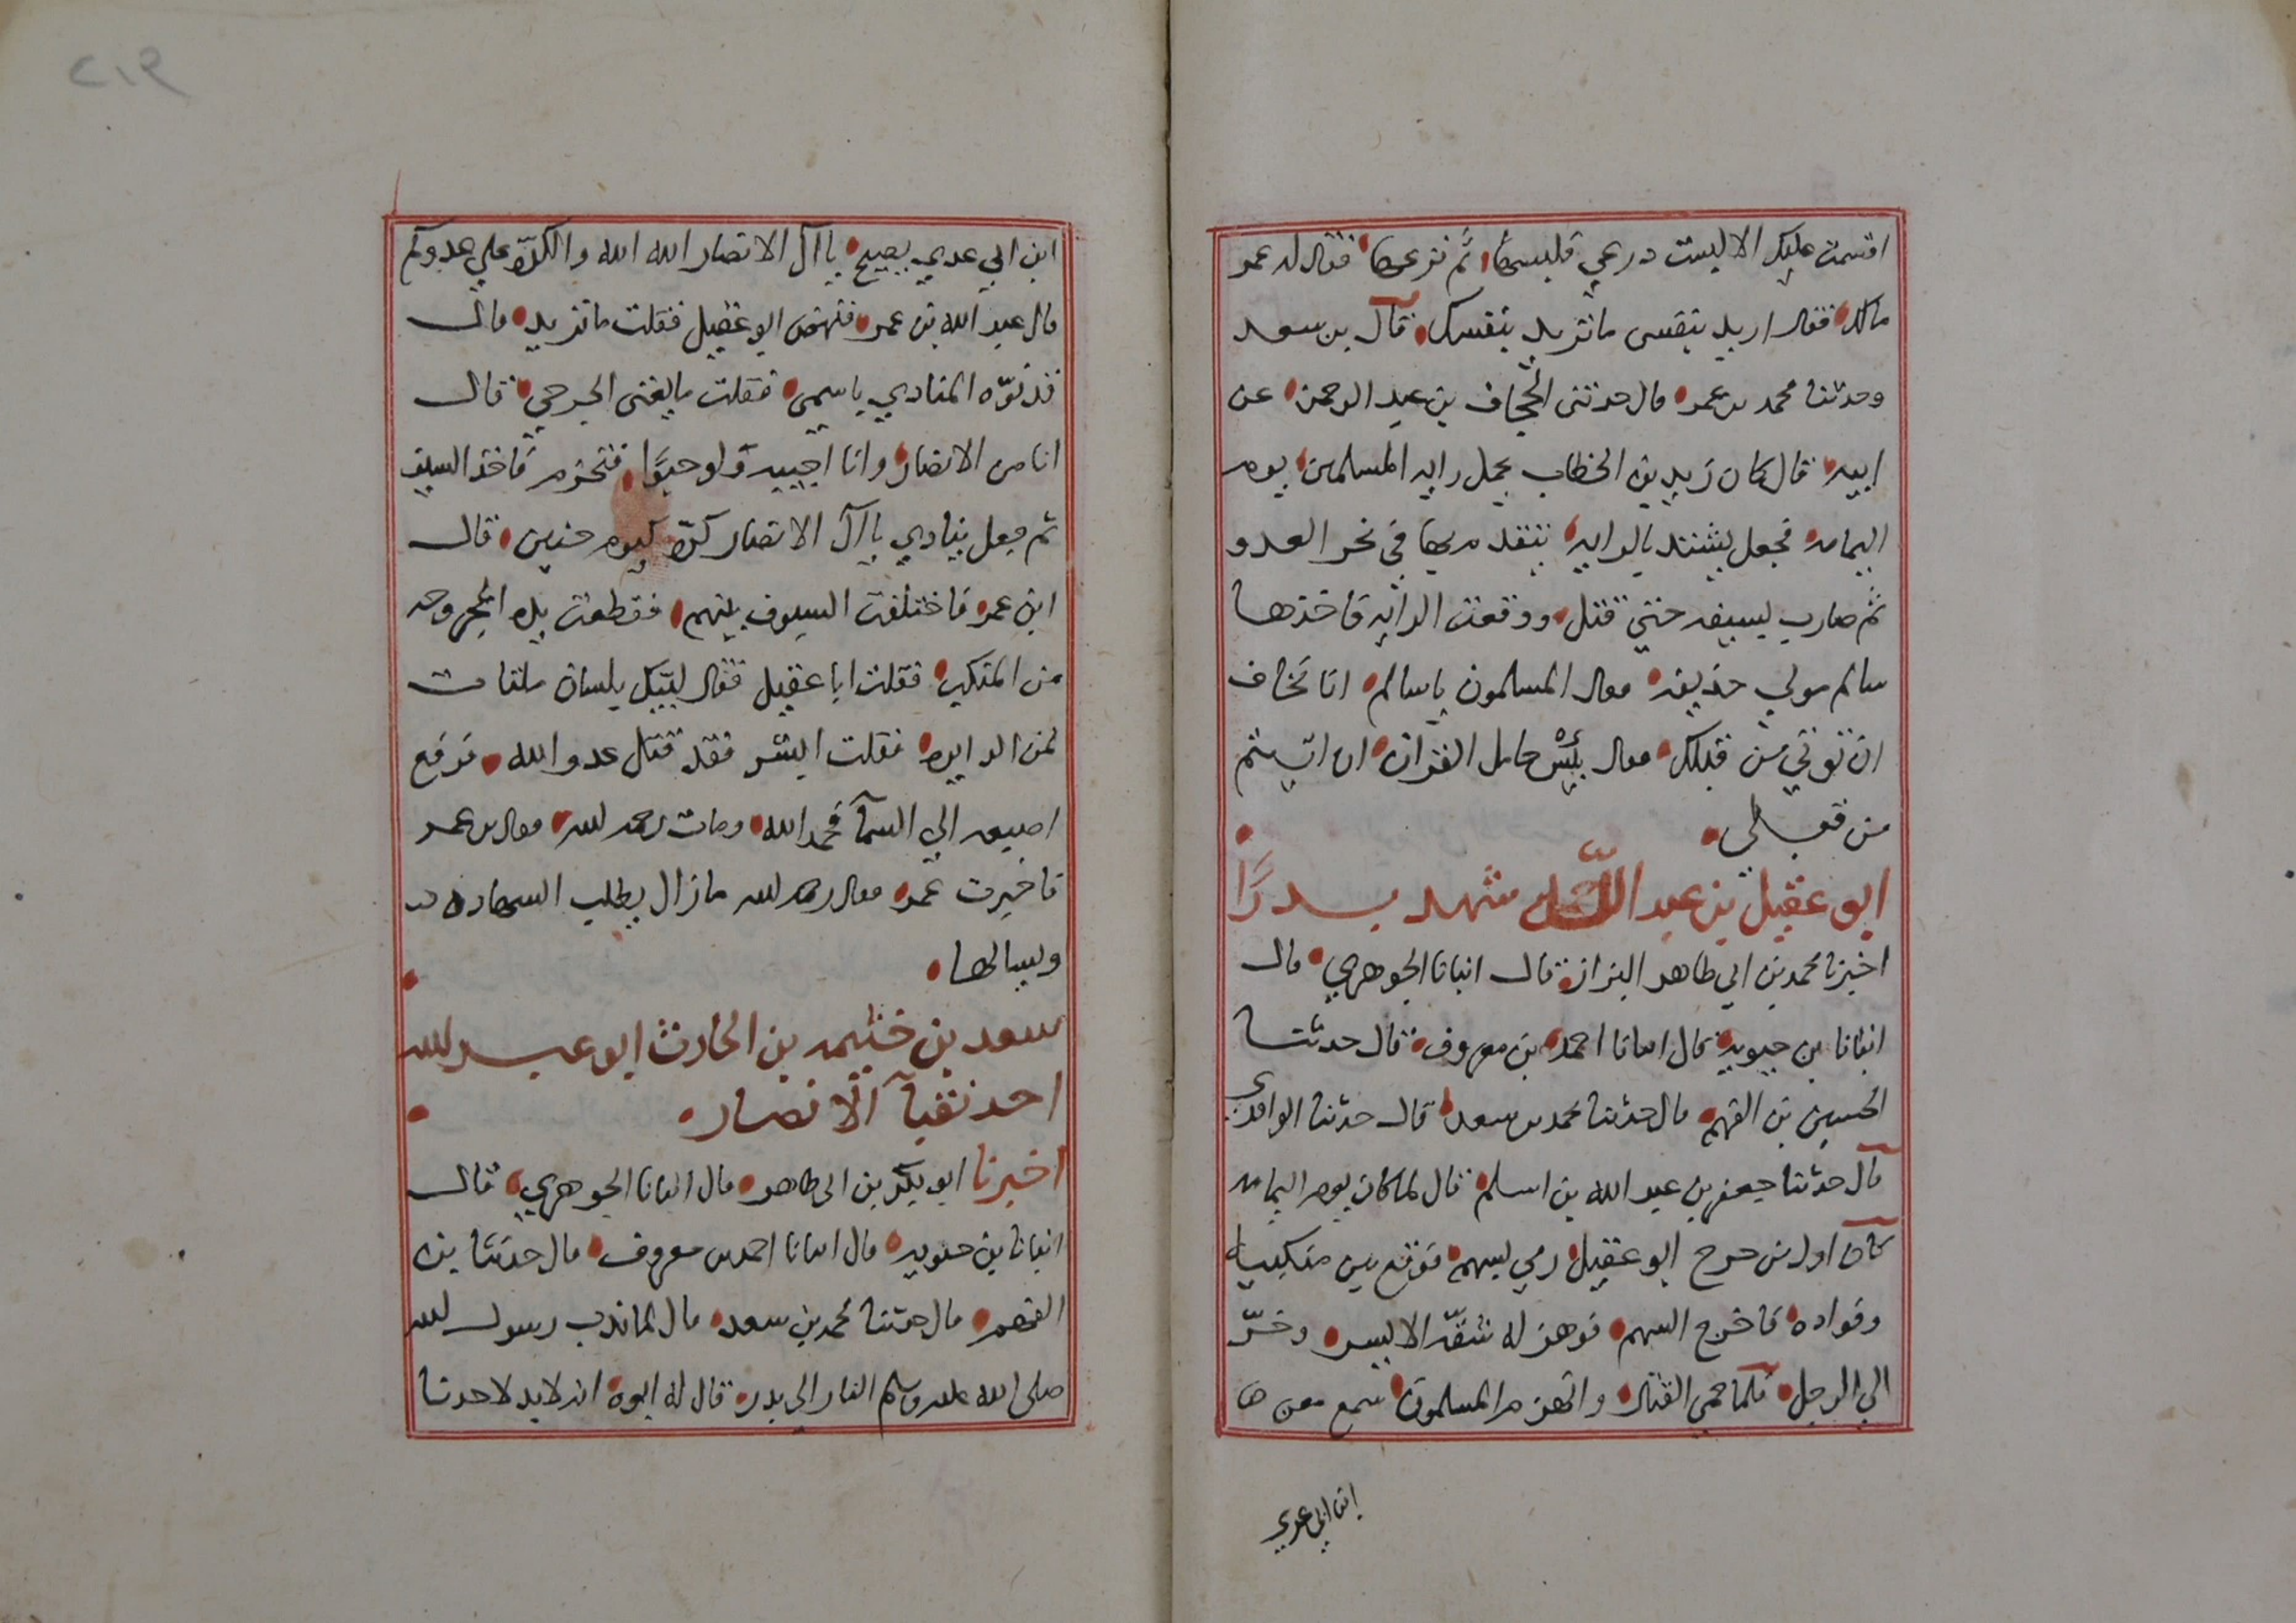 اقسمت عليك الا لبست درعي فلبسها ثم نزعها فقال له عمر
مالك فقال اريد بنفسى ما تريد بنفسك قال بن سعد
وحدثنا محمد بن عمر قال حدثنى الجحاف بن عبد الرحمن عن
ابيه قال كان زيد بن الخطاب يحمل رايه المسلمين يوم
اليمامه فجعل يشتد بالرايه يتقدم بها في نحر العدو
ثم ضارب بسيفه حتي قتل ووقعت الرايه فاخذها
سالم مولي حذيفه فقال المسلمون يا سالم انا نخاف
ان نوتي من قبلك فقال بئس حامل القران ان اتيتم
من قبلي
ابو عقيل بن عبد الله شهد بدرًا
اخبرنا محمد بن ابي طاهر البزاز قال انبانا الجوهري قال
انبانا بن حيويه قال انبانا احمد بن معروف قال حدثنا
الحسين بن الفهم قال حدثنا محمد بن سعد قال حدثنا الواقدي
قال حدثنا جعفر بن عبد الله بن اسلم قال لما كان يوم اليمامه
كان اول من جرح ابو عقيل رمي بسهم فوقع بين منكبيه
وفواده فاخرج السهم فوهن له شقّه الايسر وجرّ
الي الرجل فلما حمي القتال وانهزم المسلمون سمع معن
ابن ابي عدي
٢١٩
ابن ابي عدي يصيح يا آل الانصار الله الله والكرّة علي عدوكم
قال عبد الله بن عمر فنهض ابو عقيل فقلت ما تريد قال
قد نوّه المنادي باسمي فقلت ما يعنى الجرحي قال
انا من الانصار وانا اجيبه ولو حبوًا فتحزم فاخذ السيف
ثم جعل ينادي يا آل الانصار كرّة كيوم حنين قال
ابن عمر فاختلفت السيوف بينهم فقطعت يده المجروحه
من المنكب فقلت ابا عقيل فقال لبيك بلسان ملتاث
لمن الدايره فقلت ابشر فقد قتل عدو الله فرفع
اصبعه الي السمآ فحمد الله ومات رحمه الله فقال بن عمر
فاخبرت عمر فقال رحمه الله ما زال يطلب الشهاده
ويسالها
سعد بن خيثمه بن الحارث ابو عبد الله
احد نقبآ الانصار
اخبرنا ابو بكر بن ابي طاهر قال انبانا الجوهري قال
انبانا بن حيويه قال انبانا احمد بن معروف قال حدثنا بن
الفهم قال حدثنا محمد بن سعد قال لما ندب رسول الله
صلى الله عليه وسلم الناس الي بدر قال له ابوه انه لا بد لاحدنا